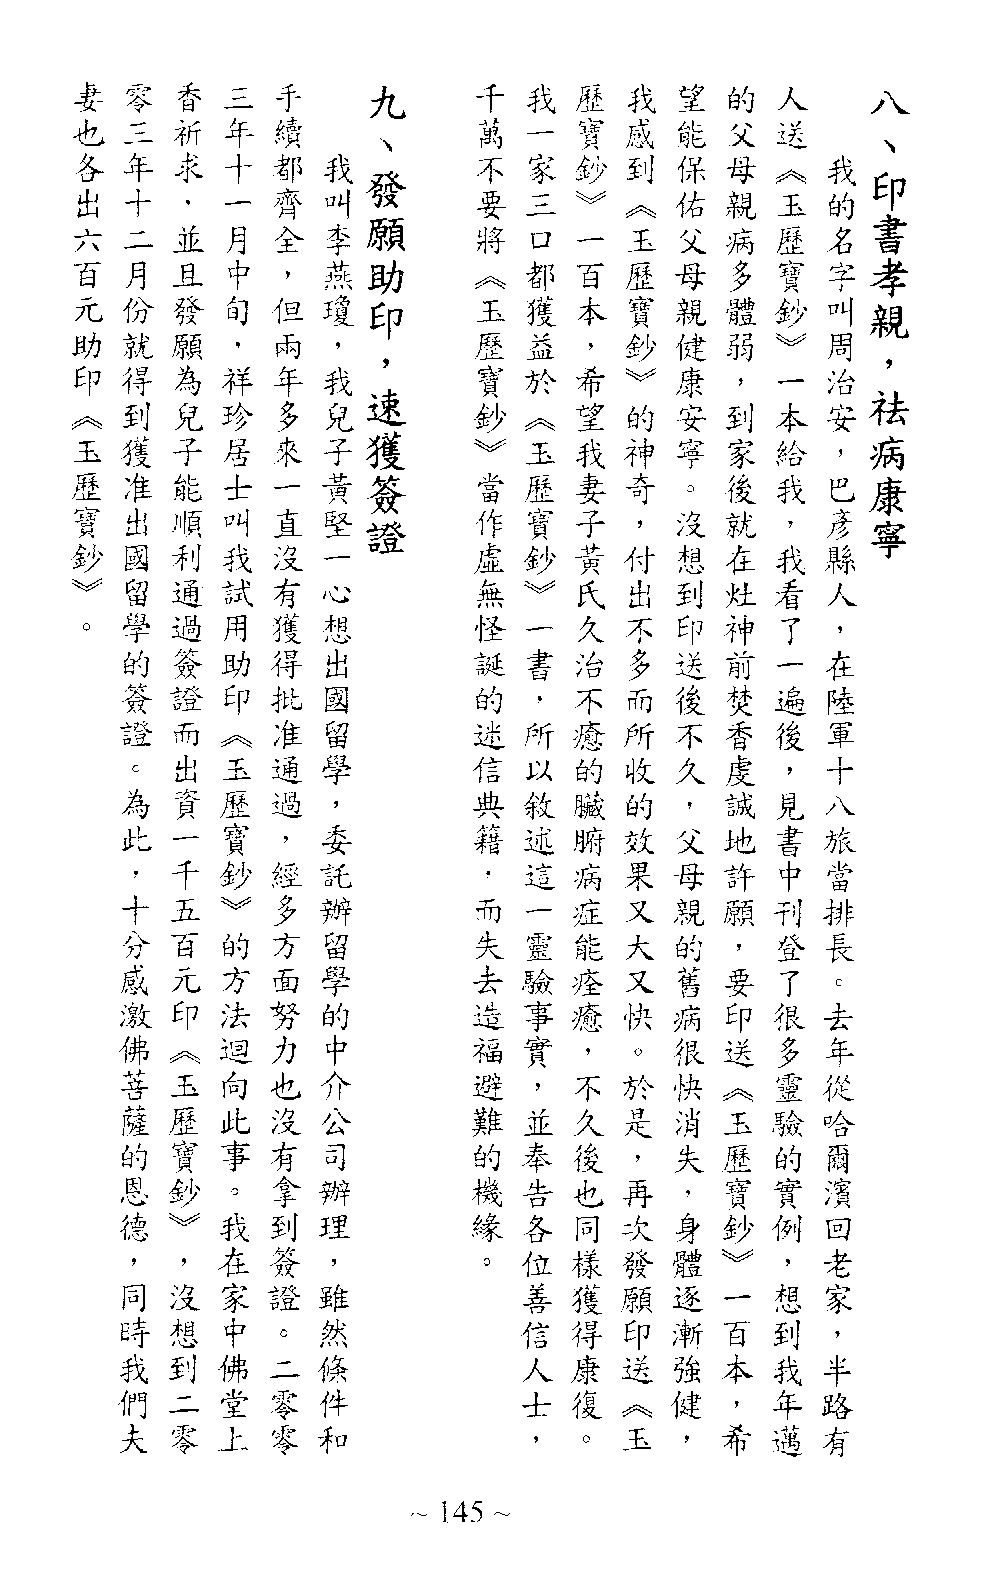 八、印書孝親，祛病康寧
我的名字叫周治安，巴彥縣人，在陸軍十八旅當排長。去年從哈爾濱回老家，半路有
人送《玉歷寶鈔》一本給我，我看了一遍後，見書中刊登了很多靈驗的實例，想到我年邁
的父母親病多體弱，到家後就在灶神前焚香虔誠地許願，要印送《玉歷寶鈔》一百本，希
望能保佑父母親健康安寧。沒想到印送後不久，父母親的舊病很快消失，身體逐漸強健，
我感到《玉歷寶鈔》的神奇，付出不多而所收的效果又大又快。於是，再次發願印送《玉
歷寶鈔》一百本，希望我妻子黃氏久治不癒的臟腑病症能痊癒，不久後也同樣獲得康復。
我一家三口都獲益於《玉歷寶鈔》一書，所以敘述這一靈驗事實，並奉告各位善信人士，
千萬不要將《玉歷寶鈔》當作虛無怪誕的迷信典籍．而失去造福避難的機緣。
九、發願助印，速獲簽證
我叫李燕瓊，我兒子黃堅一心想出國留學，委託辦留學的中介公司辦理，雖然條件和
手續都齊全，但兩年多來一直沒有獲得批准通過，經多方面努力也沒有拿到簽證。二零零
三年十一月中旬，祥珍居士叫我試用助印《玉歷寶鈔》的方法迴向此事。我在家中佛堂上
香祈求．並且發願為兒子能順利通過簽證而出資一千五百元印《玉歷寶鈔》，沒想到二零
零三年十二月份就得到獲准出國留學的簽證。為此，十分感激佛菩薩的恩德，同時我們夫
妻也各出六百元助印《玉歷寶鈔》。
~ 145 ~